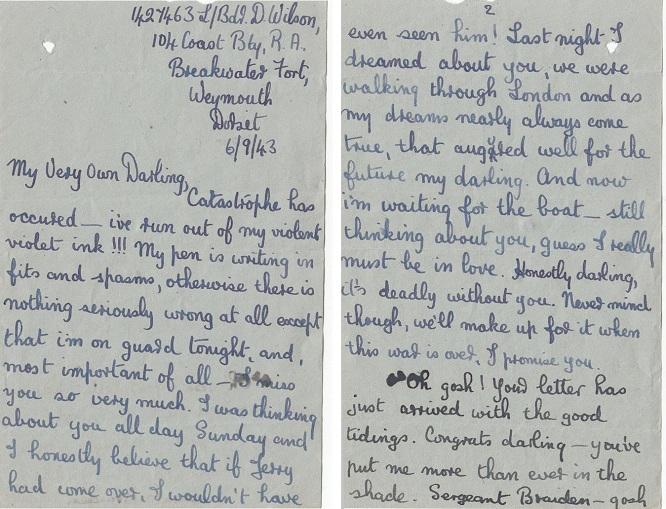 1427463 L/Bdr. D. Wilson,
104 Coast Bty, R.A.
Breakwater Fort,
Weymouth
Dorset
6/9/43
My Very Own Darling,
Catastrophe has
occured — i've run out of my violent
violet ink !!! My pen is writing in
fits and spasms, otherwise there is
nothing seriously wrong at all except
that i'm on guard tonight, and,
most important of all — I miss
you so very much. I was thinking
about you all day Sunday and
I honestly believe that if Jerry
had come over, I wouldn't have
2
even seen him! Last night I
dreamed about you, we were
walking through London and as
my dreams nearly always come
true, that augured well for the
future my darling. And now
i'm waiting for the boat — still
thinking about you, guess I really
must be in love. Honestly darling,
it's deadly without you. Never mind
though, we'll make up for it when
this war is over, I promise you.
Oh gosh! Your letter has
just arrived with the good
tidings. Congrats darling — you've
put me more than ever in the
shade. Sergeant Braiden — gosh